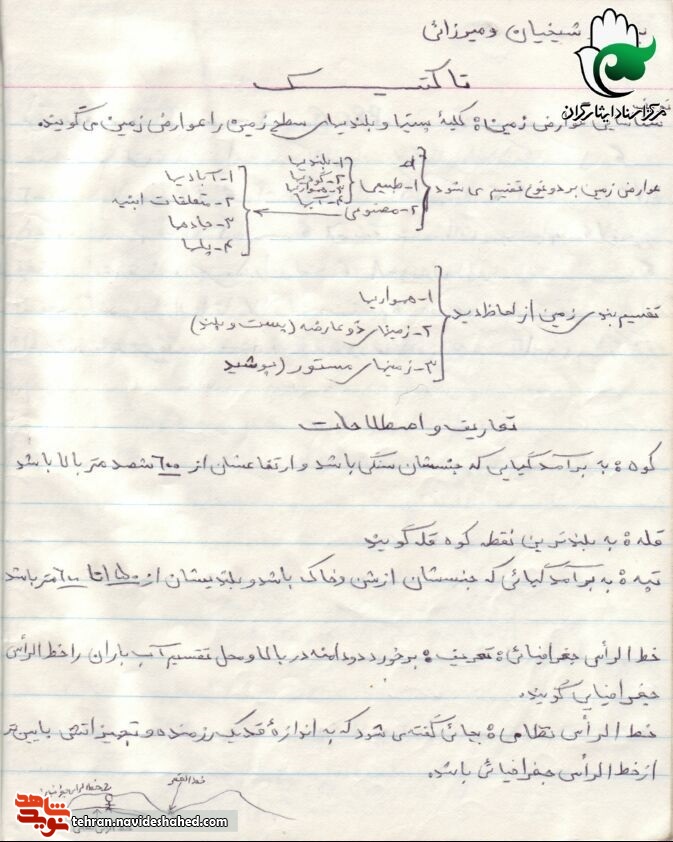 شیخیان و میرزائی
مرکز اسناد ایثارگران
تاکتیک
شناسایی عوارض زمین: کلیهٔ پستیها و بلندیهای سطح زمین را عوارض زمین می‌گویند.
عوارض زمین بر دو نوع تقسیم می شود
۱- طبیعی
۱- بلندیها
۲- گودیها
۳- همواریها
۴- آبها
۲- مصنوعی
۱- آبادیها
۲- متعلقات ابنیه
۳- جاده‌ها
۴- پلها
تقسیم بندی زمین از لحاظ دید
۱- همواریها
۲- زمینهای ذوعارضه (پست و بلند)
۳- زمینهای مستور (پوشیده
تعاریف و اصطلاحات
کوه: به برآمدگیایی که جنسشان سنگی باشد و ارتفاعشان از ۶۰۰ ششصد متر بالا باشد
قله: به بلندترین نقطه کوه قله گویند
تپه: به برآمدگیائی که جنسشان از شن و خاک باشد و بلندیشان از ۱۵۰ تا ۶۰۰ متر باشد
خط الرأس جغرافیائی: تعریف: برخورد دو دامنه در بالا و محل تقسیم آب باران را خط الرأس
جغرافیایی گویند.
خط الرأس نظامی: بجائی گفته می شود که به اندازهٔ قد یک رزمنده و تجهیزاتش پایین‌تر
از خط الرأس جغرافیائی باشد.
خط القعر
خط الرأس جغرافیا
نوید شاهد
tehran.navideshahed.com